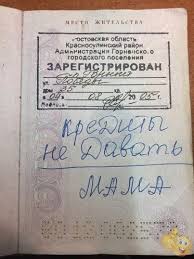 МЕСТО ЖИТЕЛЬСТВА
Ростовская область
Красносулинский район
Администрация Горненского
городского поселения
ЗАРЕГИСТРИРОВАН
дом 25
04 08 2005 г.
Кредиты
не давать
МАМА